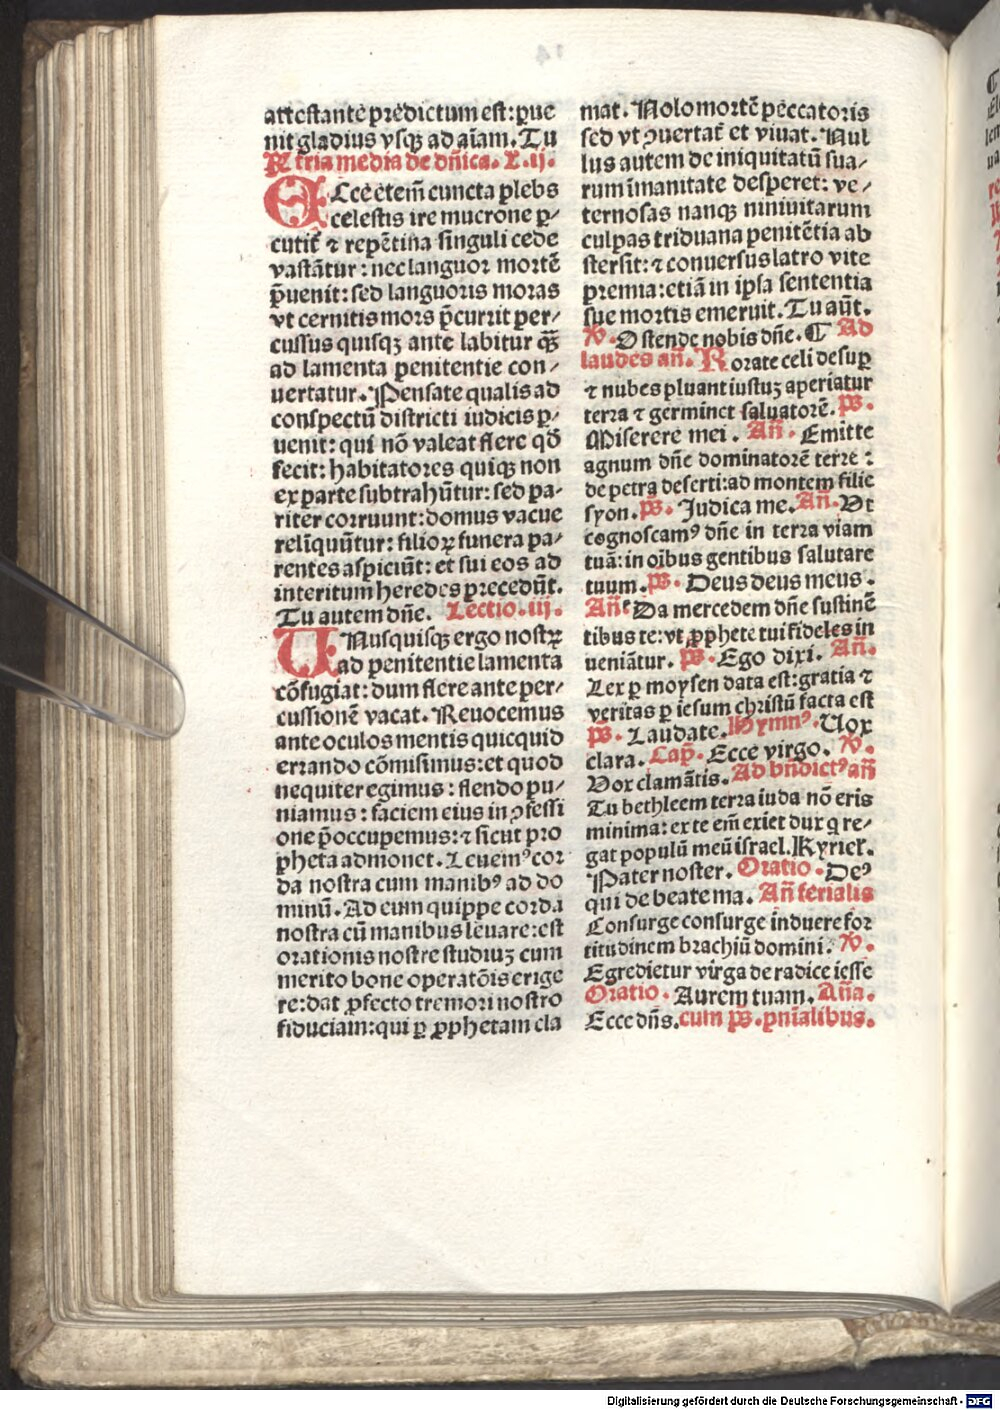 attestante predictum est: pue
nit gladius vsqꝫ ad aīam. Tu
R tria media de dñica. L. ij.
ECce etem̄ cuncta plebs
celestis ire mucrone ꝑ-
cutit᷑ ⁊ repētina singuli cede
vastātur: nec languor mortē
p̄uenit: sed languoris moras
vt cernitis mors p̄currit per⸗
cussus quisqꝫ ante labitur q̄ꝫ
ad lamenta penitentie con⸗
uertatur. Pensate qualis ad
conspectū districti iudicis ꝑ⸗
uenit: qui nō valeat flere qđ
fecit: habitatores quiqꝫ non
ex parte subtrahūtur: sed pa⸗
riter corruunt: domus vacue
relīquūtur: filioꝝ funera pa⸗
rentes aspiciūt: et sui eos ad
interitum heredes precedūt.
Tu autem dñe. Lectio. iij.
UNusquisqꝫ ergo nostꝝ
ad penitentie lamenta
cōfugiat: dum flere ante per⸗
cussionē vacat. Reuocemus
ante oculos mentis quicquid
errando cōmisimus: et quod
nequiter egimus: flendo pu⸗
niamus: faciem eius in ꝯfessi
one p̄occupemus: ⁊ sicut pro
pheta admonet. Leuemꝰ cor
da nostra cum manibꝰ ad do
minū. Ad eum quippe corda
nostra cū manibus leuare: est
orationis nostre studiuꝫ cum
merito bone operatōis erige
re: dat ꝓfecto tremori nostro
fiduciam: qui ꝑ ꝓphetam cla
mat. Nolo mortē peccatoris
sed vt ꝯuertat᷑ et viuat. Nul
lus autem de iniquitatū sua⸗
rum īmanitate desperet: ve⸗
ternosas nanqꝫ niniuitarum
culpas triduana penitētia ab
stersit: ⁊ conuersus latro vite
premia: etiā in ipsa sententia
sue mortis emeruit. Tu aūt.
V. Ostende nobis dñe. ¶ Ad
laudes añ. Rorate celi desuꝑ
⁊ nubes pluant iustuꝫ aperiatur
terra ⁊ germinet saluatorē. ps.
Miserere mei. Añ. Emitte
agnum dñe dominatorē terre:
de petra deserti: ad montem filie
syon. ps. Judica me. Añ. Vt
cognoscamꝰ dñe in terra viam
tuā: in oībus gentibus salutare
tuum. ps. Deus deus meus.
Añ. Da mercedem dñe sustinē
tibus te: vt ꝓphete tui fideles in
ueniātur. ps. Ego dixi. Añ.
Lex ꝑ moysen data est: gratia ⁊
veritas ꝑ iesum christū facta est
ps. Laudate. Hymnꝰ. Uox
clara. Cap̄. Ecce virgo. V.
Vox clamātis. Ad bn̄dictꝰ añ
Tu bethleem terra iuda nō eris
minima: ex te em̄ exiet dux q re⸗
gat populū meū israel. Kyriel.
Pater noster. Oratio. Deꝰ
qui de beate ma. Añ ferialis
Consurge consurge induere for
titudinem brachiū domini. V.
Egredietur virga de radice iesse
Oratio. Aurem tuam. Aña.
Ecce dñs. cum ps. pnīalibus.
Digitalisierung gefördert durch die Deutsche Forschungsgemeinschaft - DFG